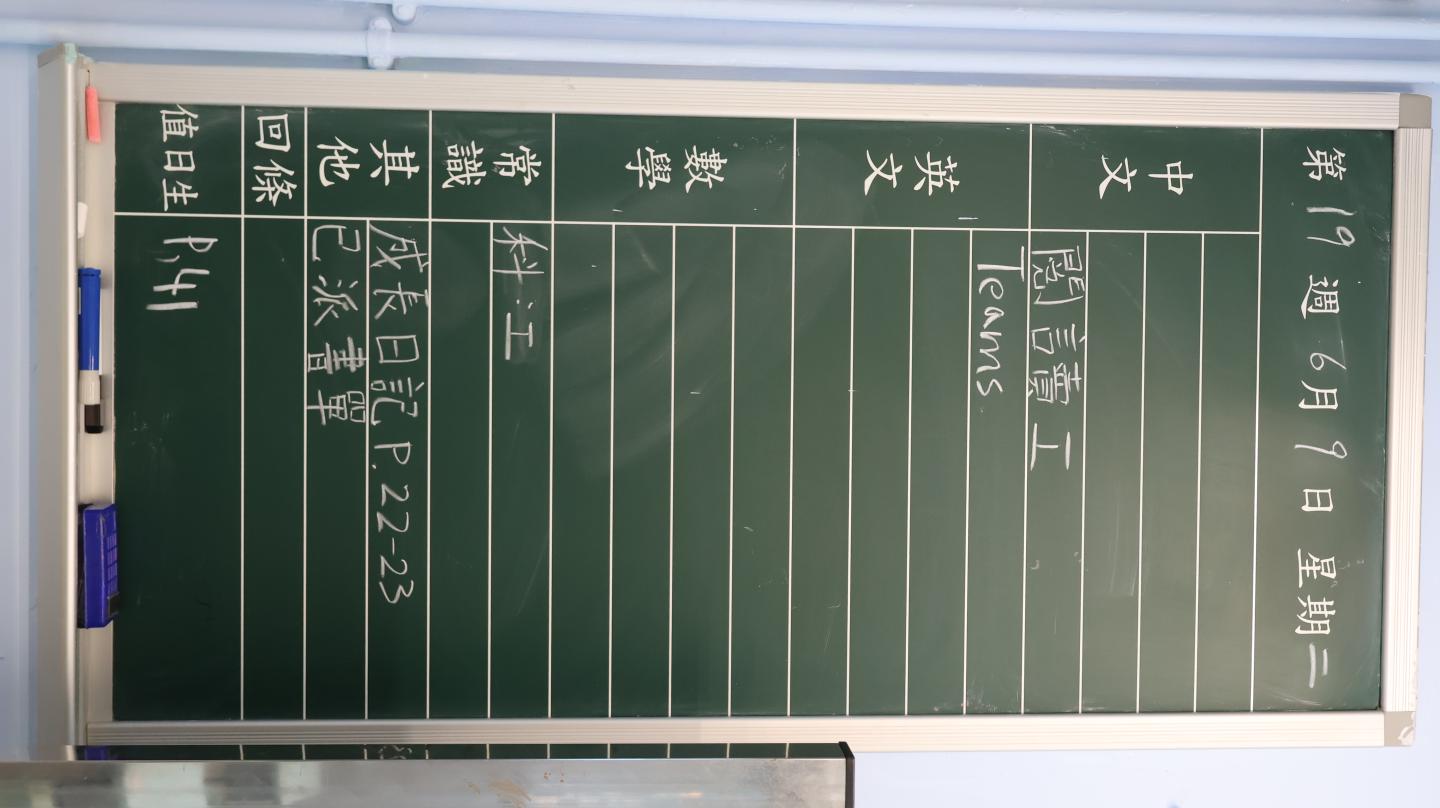 第19週 6月9日 星期二
中文
閱讀工
英文
Teams
數學
常識
科.工
其他
成長日記 P.22-23
已派書單
回條
值日生 P,41